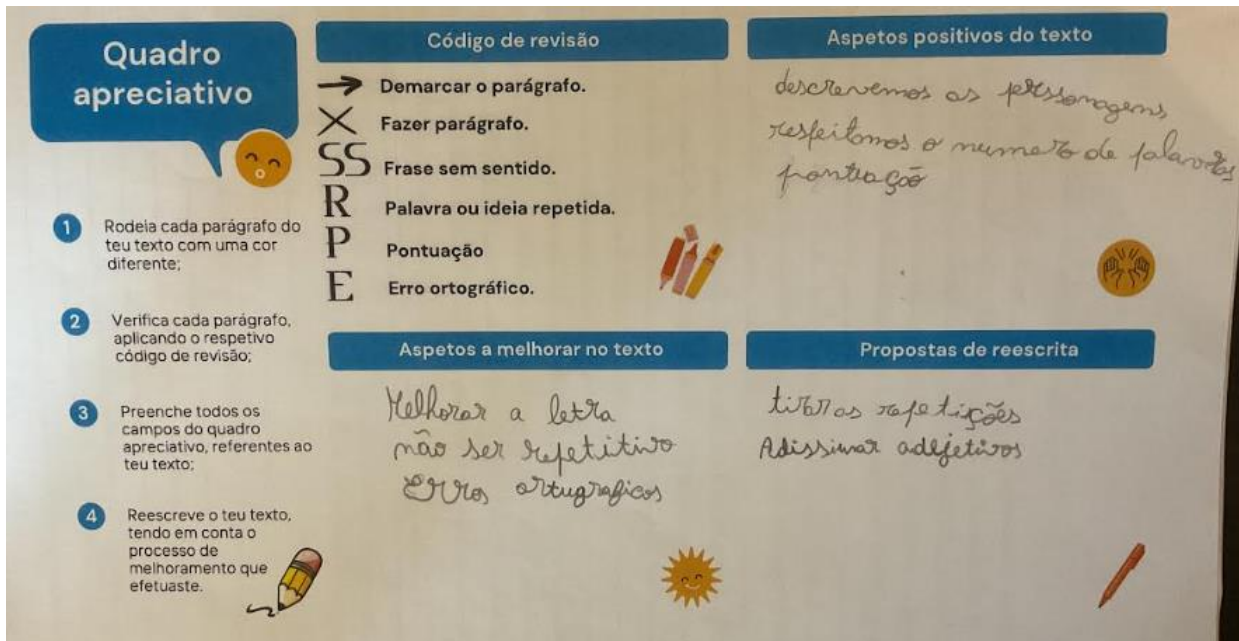 Quadro
apreciativo
1 Rodeia cada parágrafo do
teu texto com uma cor
diferente;
2 Verifica cada parágrafo,
aplicando o respetivo
código de revisão;
3 Preenche todos os
campos do quadro
apreciativo, referentes ao
teu texto;
4 Reescreve o teu texto,
tendo em conta o
processo de
melhoramento que
efetuaste.
Código de revisão
→ Demarcar o parágrafo.
X Fazer parágrafo.
SS Frase sem sentido.
R Palavra ou ideia repetida.
P Pontuação
E Erro ortográfico.
Aspetos positivos do texto
descrevemos as personagens,
respeitamos o numero de palavras
pontuação
Aspetos a melhorar no texto
Melhorar a letra
não ser repetitivo
Erros ortugraficos
Propostas de reescrita
tirar as repetições
Adissunar adejetivos